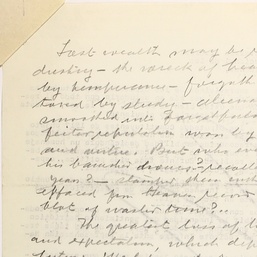 Lost wealth may be r
dustry - the wreck of hea
by temperance - forgott
tored by study - aliena
smoothed into forgetfuln
feited reputation won by
and virtue. But who eve
his vanished hours? recalle
years? - stamped them with
effaced from Heaven's record
blot of wasted time?..
The greatest loss of t
and expectation, which dep